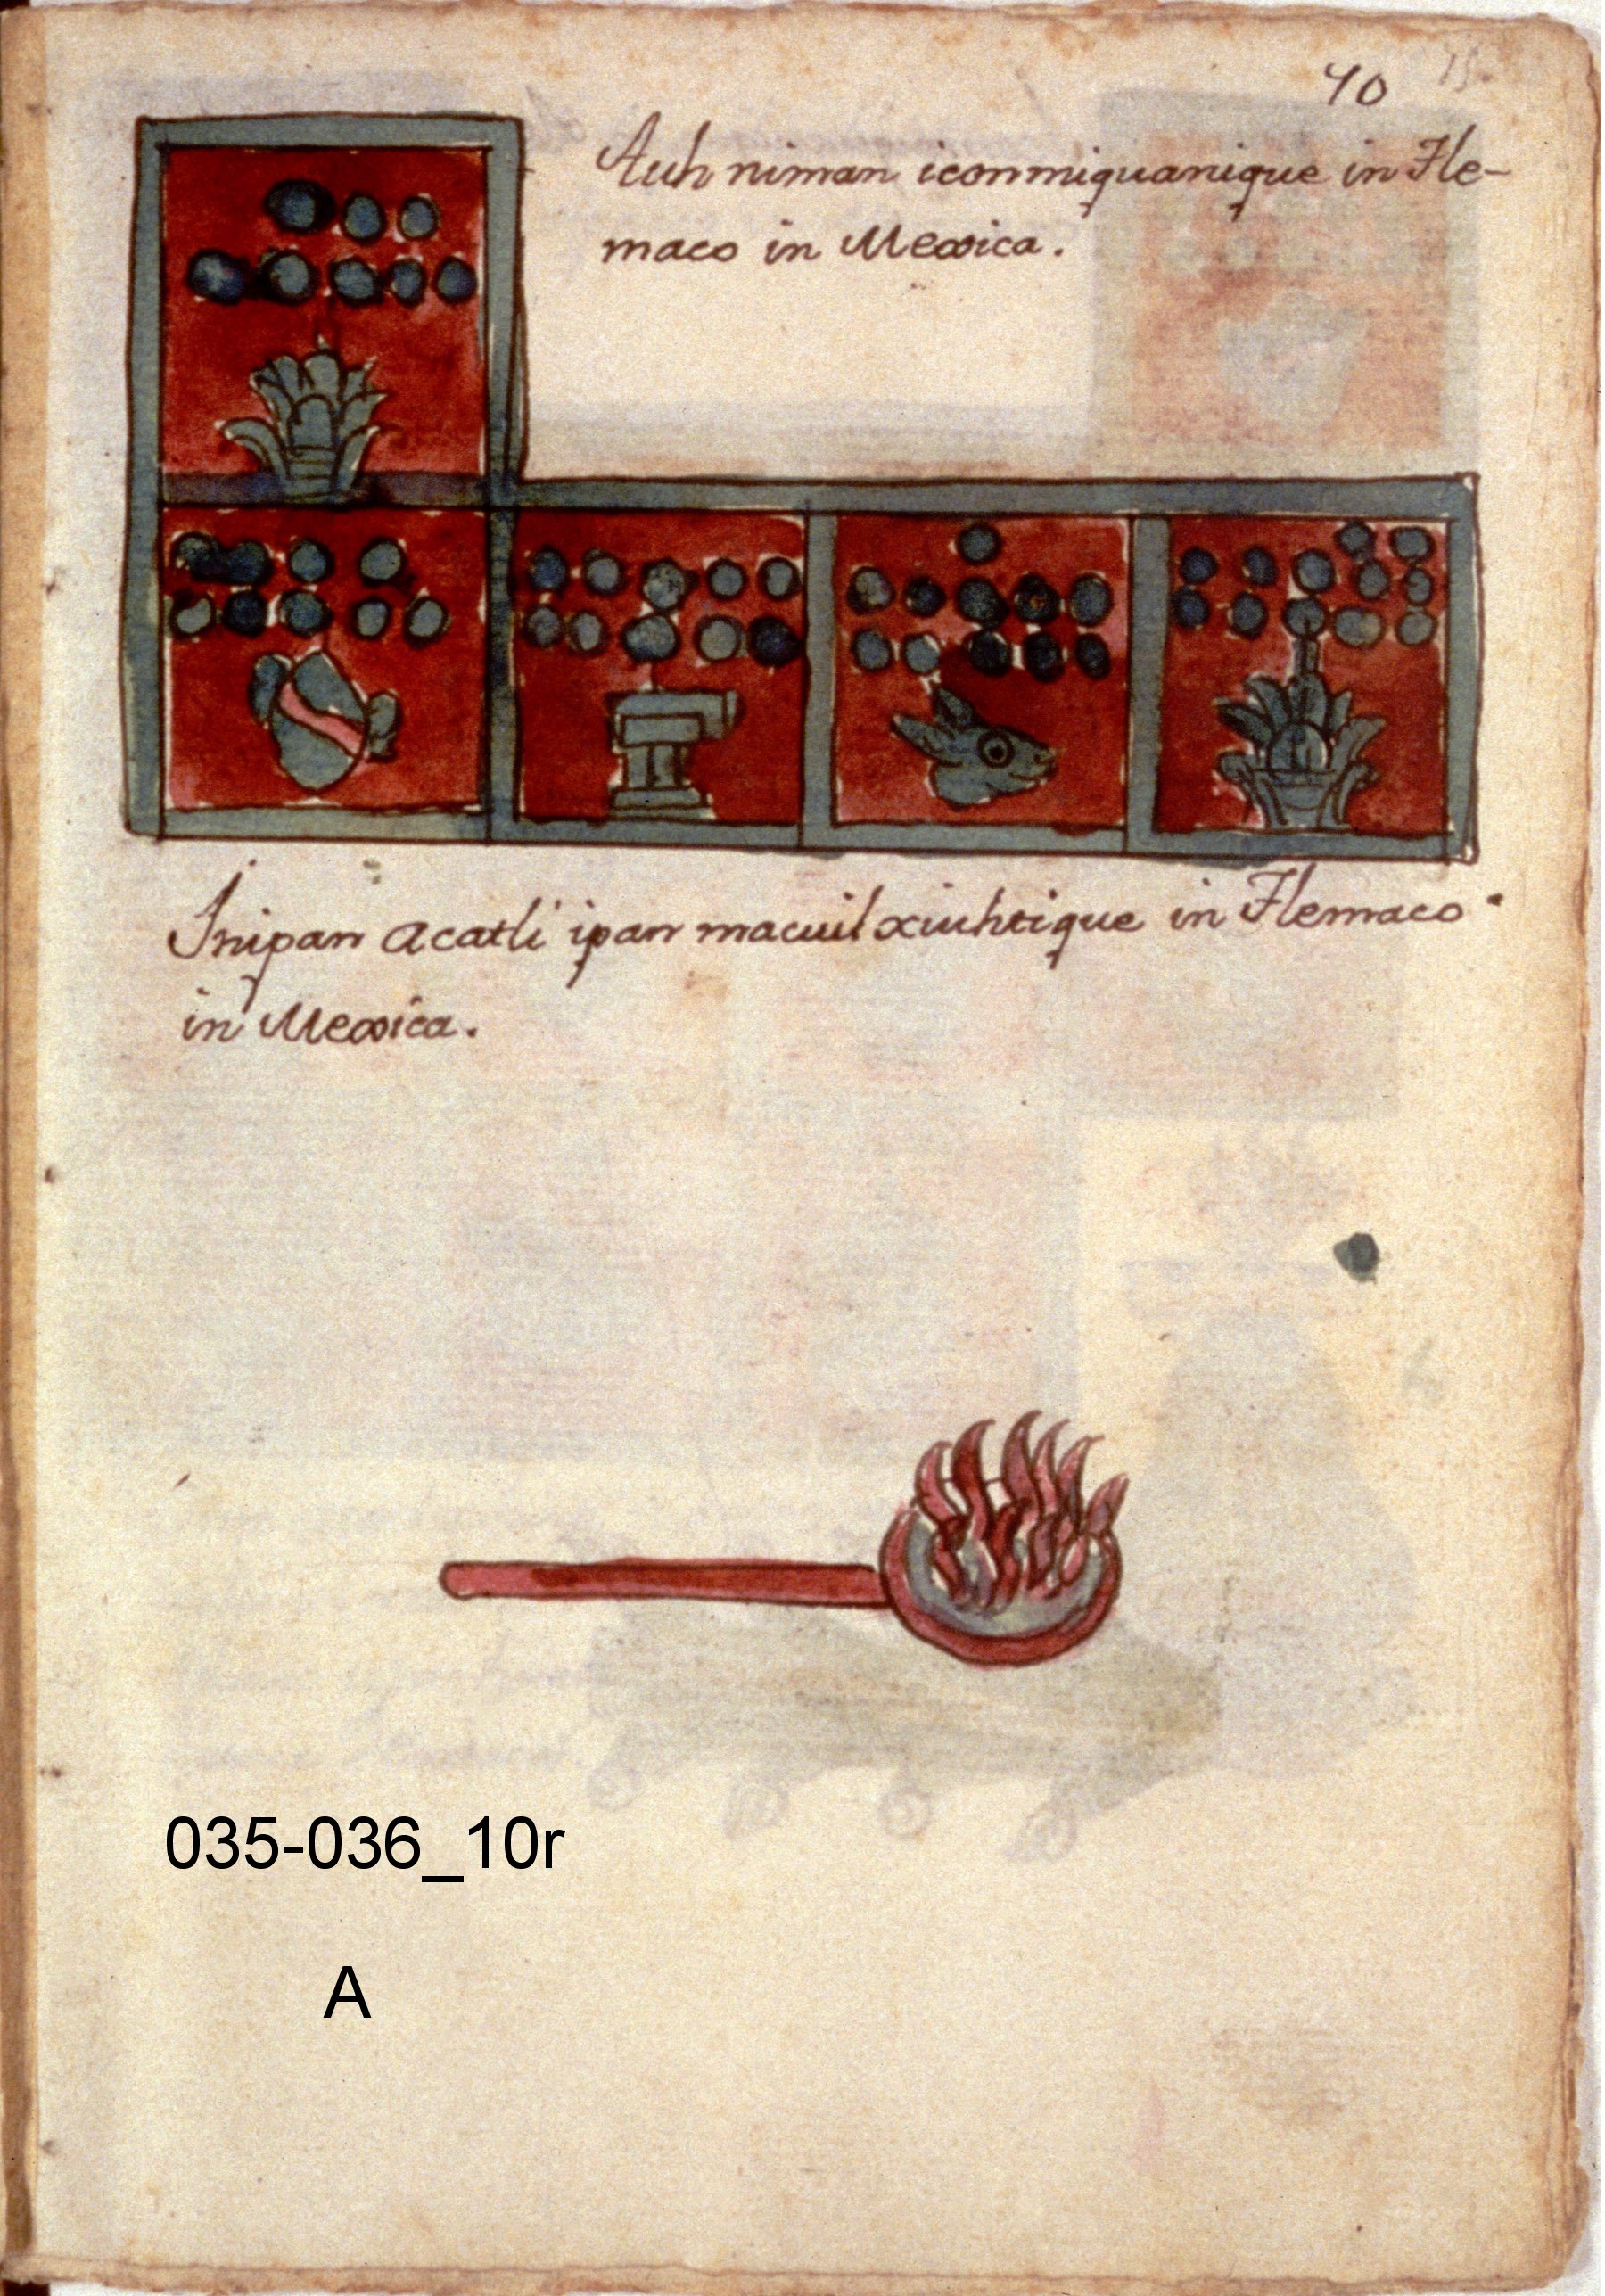 10
15.
Auh niman iconmiquanique in Tle-
maco in Mexica.
Inipan acatli ipan macuilxiuhtique in Tlemaco
in Mexica.
035-036_10r
A